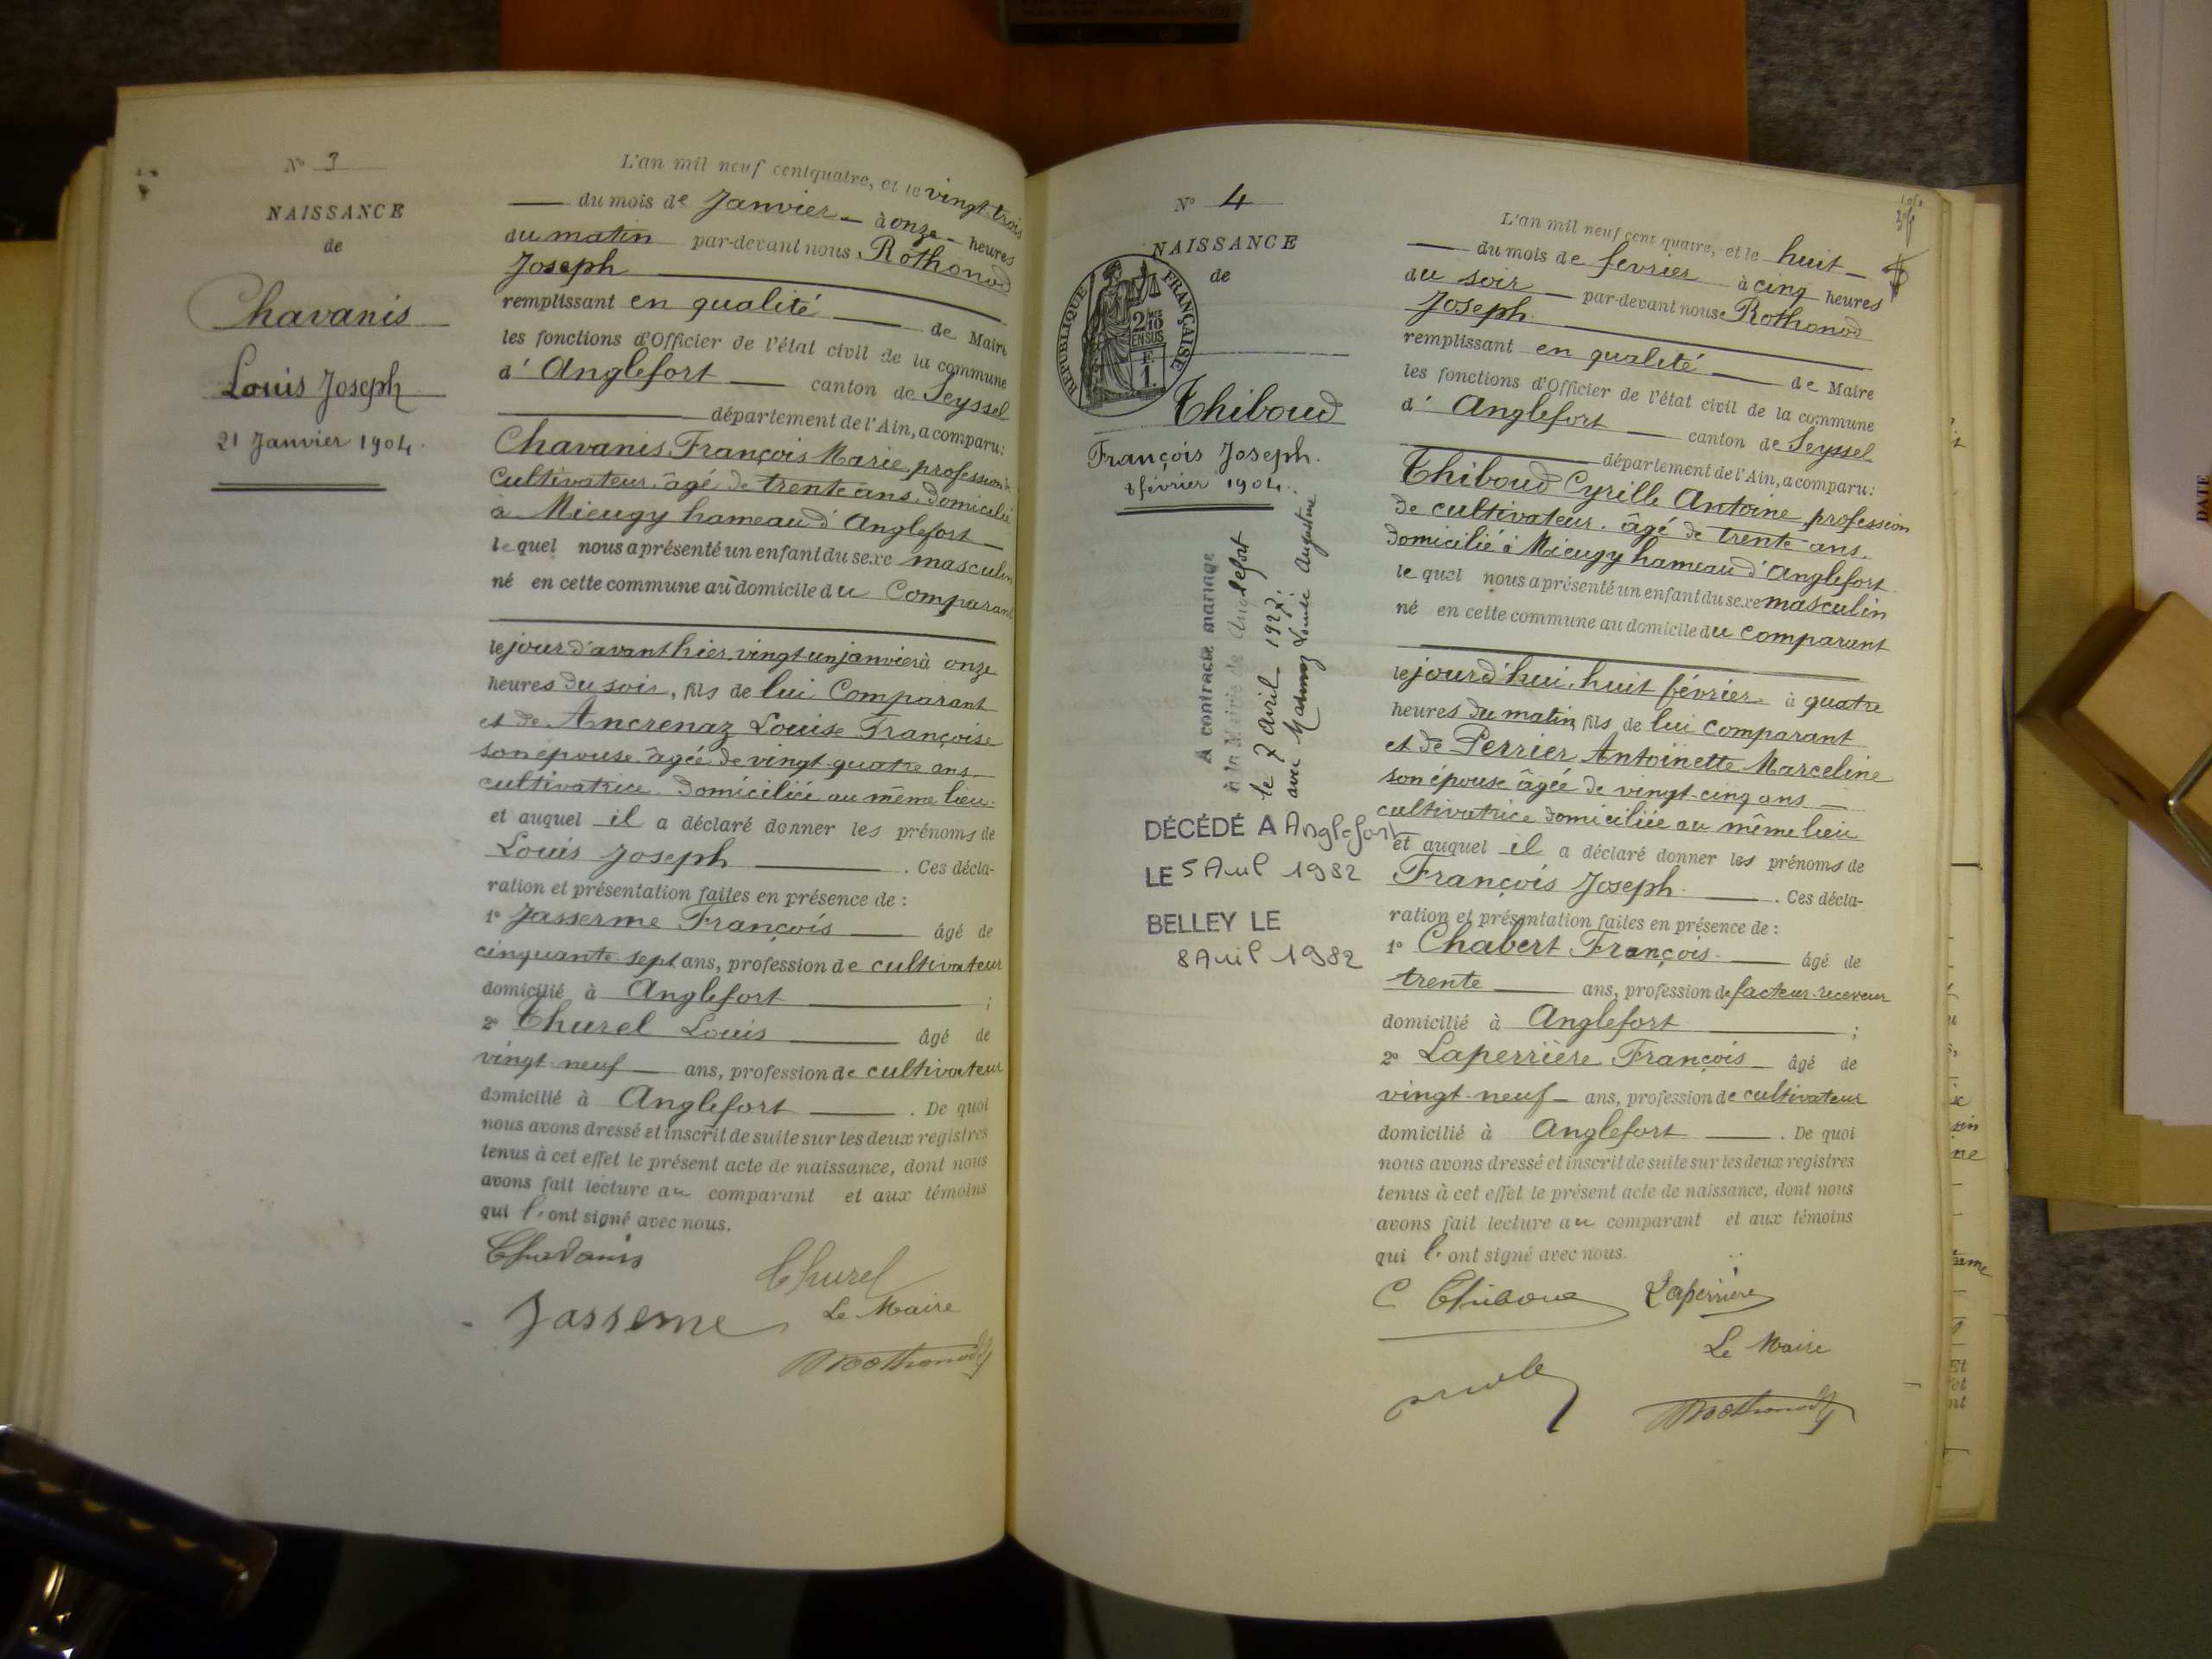 N° 3
NAISSANCE
de
Chavanis
Louis Joseph
21 Janvier 1904.
L'an mil neuf cent quatre, et le vingt-trois
du mois de Janvier à onze heures
du matin par-devant nous Rothonod
Joseph
remplissant en qualité de Maire
les fonctions d'Officier de l'état civil de la commune
d'Anglefort canton de Seyssel
département de l'Ain, a comparu:
Chavanis François Marie, profession de
cultivateur, âgé de trente ans, domicilié
à Mieugy hameau d'Anglefort
lequel nous a présenté un enfant du sexe masculin
né en cette commune au domicile du Comparant
le jour d'avant hier vingt un janvier à onze
heures du soir, fils de lui Comparant
et de Ancrenaz Louise Françoise
son épouse âgée de vingt-quatre ans
cultivatrice domiciliée au même lieu.
et auquel il a déclaré donner les prénoms de
Louis Joseph . Ces décla-
ration et présentation faites en présence de :
1° Jasserme François âgé de
cinquante sept ans, profession de cultivateur
domicilié à Anglefort ;
2° Thurel Louis âgé de
vingt-neuf ans, profession de cultivateur
domicilié à Anglefort . De quoi
nous avons dressé et inscrit de suite sur les deux registres
tenus à cet effet le présent acte de naissance, dont nous
avons fait lecture au comparant et aux témoins
qui l'ont signé avec nous.
Chavanis
Thurel
Jasserme
Le Maire
Rothonod
N° 4
NAISSANCE
de
RÉPUBLIQUE FRANÇAISE
2/10
EN SUS
F.
1.
Thiboud
François Joseph.
8 février 1904.
A contracté mariage
à la Mairie de Anglefort
le 7 avril 1927.
avec Louise Augustine
DÉCÉDÉ A Anglefort
LE 5 Avril 1982
BELLEY LE
8 Avril 1982
L'an mil neuf cent quatre, et le huit
du mois de février à cinq heures
du soir par-devant nous Rothonod
Joseph
remplissant en qualité de Maire
les fonctions d'Officier de l'état civil de la commune
d'Anglefort canton de Seyssel
département de l'Ain, a comparu:
Thiboud Cyrille Antoine, profession
de cultivateur, âgé de trente ans,
domicilié à Mieugy hameau d'Anglefort
lequel nous a présenté un enfant du sexe masculin
né en cette commune au domicile du comparant
le jourd'hui, huit février à quatre
heures du matin, fils de lui comparant
et de Perrier Antoinette Marceline
son épouse âgée de vingt-cinq ans
cultivatrice domiciliée au même lieu
et auquel il a déclaré donner les prénoms de
François Joseph . Ces décla-
ration et présentation faites en présence de :
1° Chabert François âgé de
trente ans, profession de facteur-receveur
domicilié à Anglefort ;
2° Laperrière François âgé de
vingt-neuf ans, profession de cultivateur
domicilié à Anglefort . De quoi
nous avons dressé et inscrit de suite sur les deux registres
tenus à cet effet le présent acte de naissance, dont nous
avons fait lecture au comparant et aux témoins
qui l'ont signé avec nous.
C Thiboud Laperrière
Le Maire
Rothonod
DATE